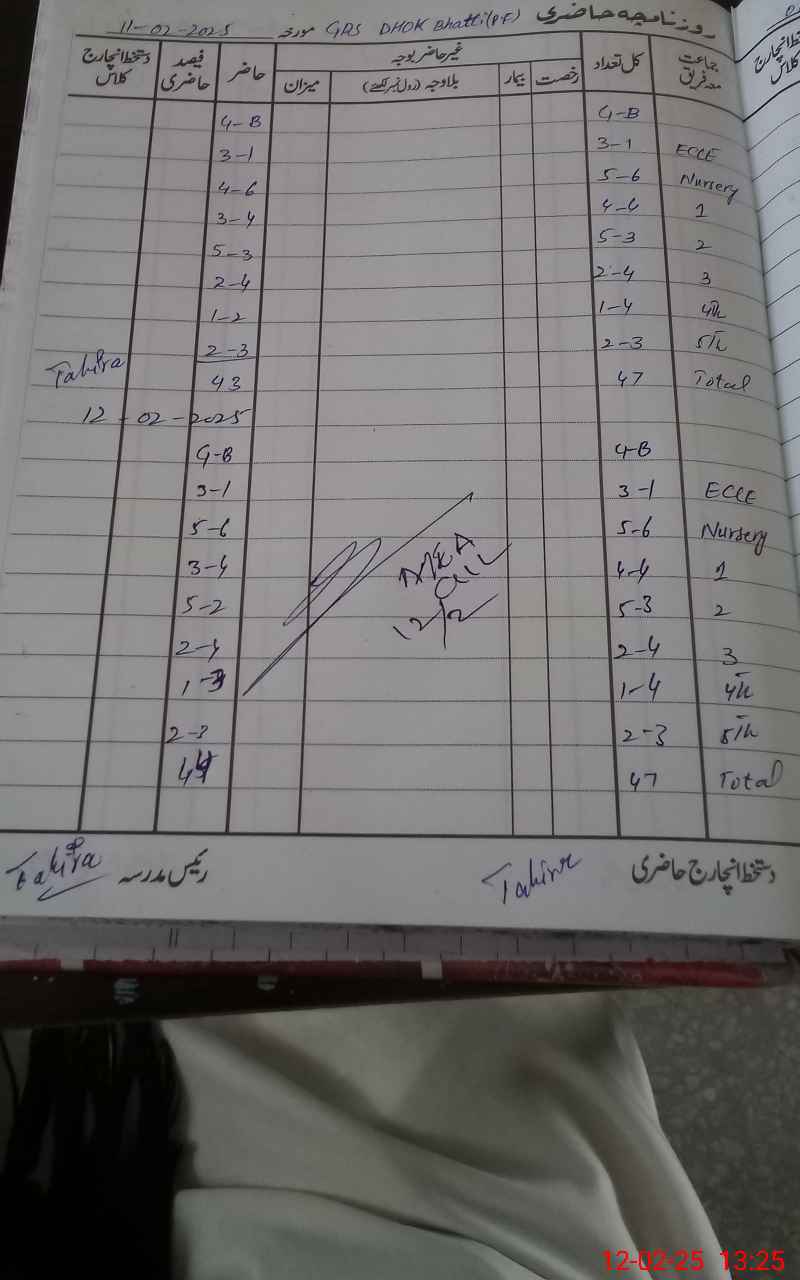 روزنامچہ حاضری GPS DHOK Bhatti(PF) مورخہ 11-02-2025
جماعت معہ فریق کل تعداد غیر حاضر بوجہ حاضر فیصد حاضری دستخط انچارج کلاس
رخصت بیمار بلاوجہ (رول نمبر لکھئے) میزان
G-B G-B
ECCE 3-1 3-1
Nursery 5-6 4-6
1 4-4 3-4
2 5-3 5-3
3 2-4 2-4
4th 1-4 1-2
5th 2-3 2-3
Total 47 43 Tahira
12-02-2025
G-B G-B
ECCE 3-1 3-1
Nursery 5-6 5-6
1 4-4 3-4
2 5-3 5-2
3 2-4 2-4
4th 1-4 1-3
5th 2-3 2-3
Total 47 44
MEA
12/2
دستخط انچارج حاضری Tahira رئیس مدرسہ Tahira
12-02-25 13:25